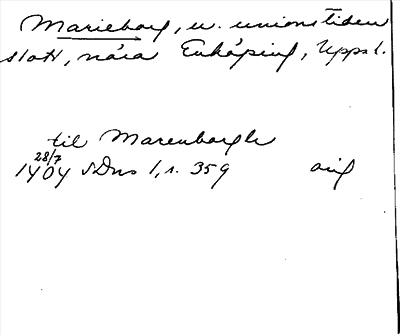 Marieborg, u. unionstiden
slott, nära Enköping, Uppsl.
til Marenborgh
28/7
1404 SDns 1, s. 359 orig